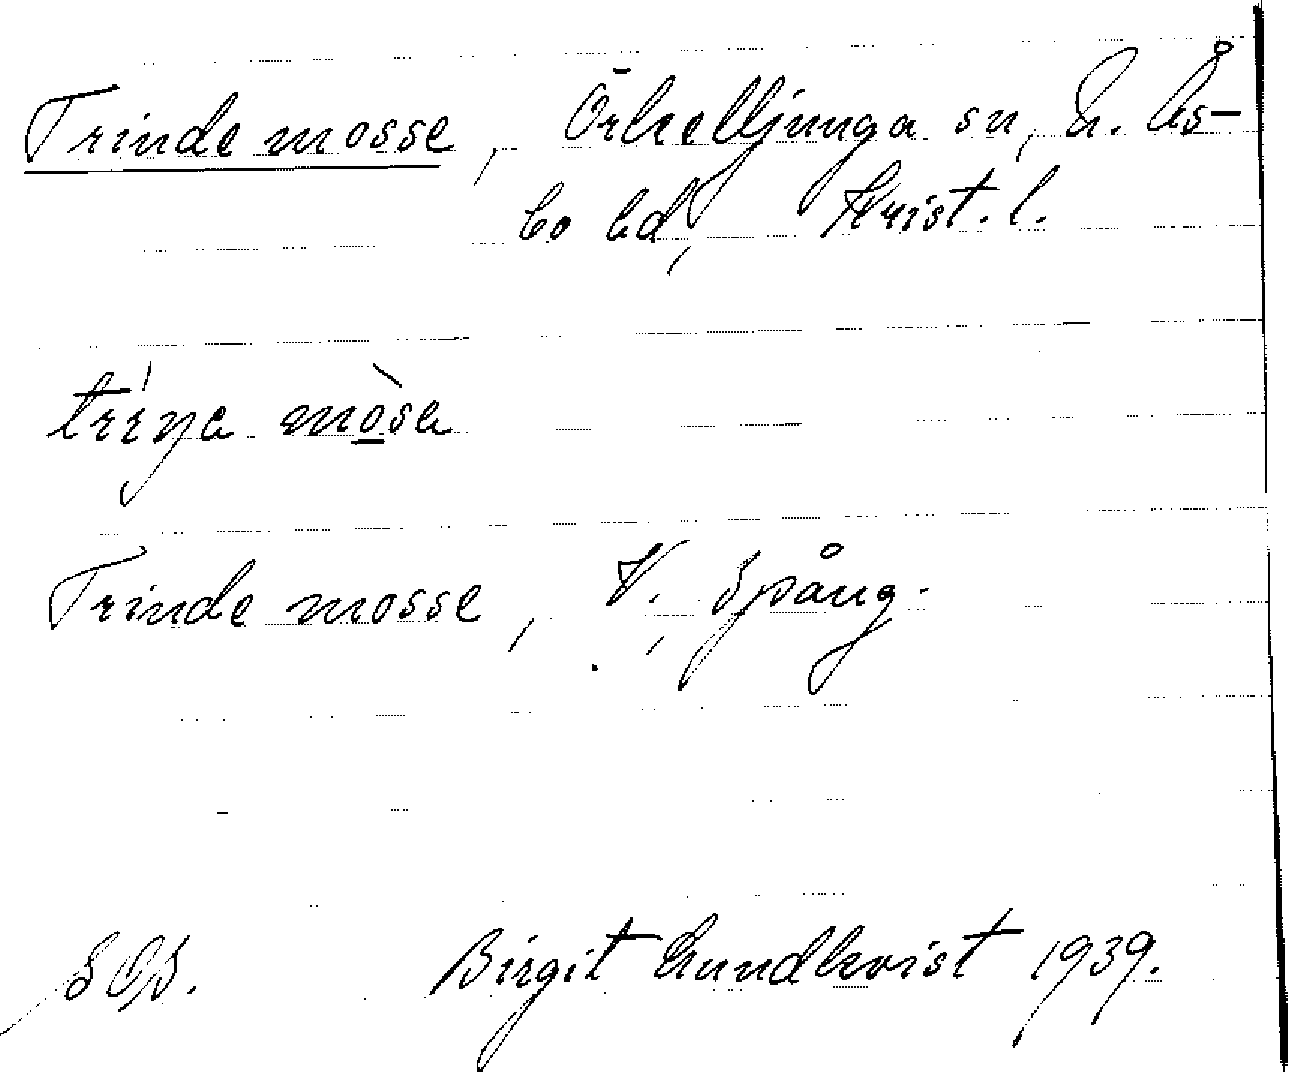 Trinde mosse, Örkelljunga sn, N. Ås-
bo hd, Krist. l.
trìŋe mòse
Trinde mosse, V. Spång.
Birgit Lundkvist 1939.